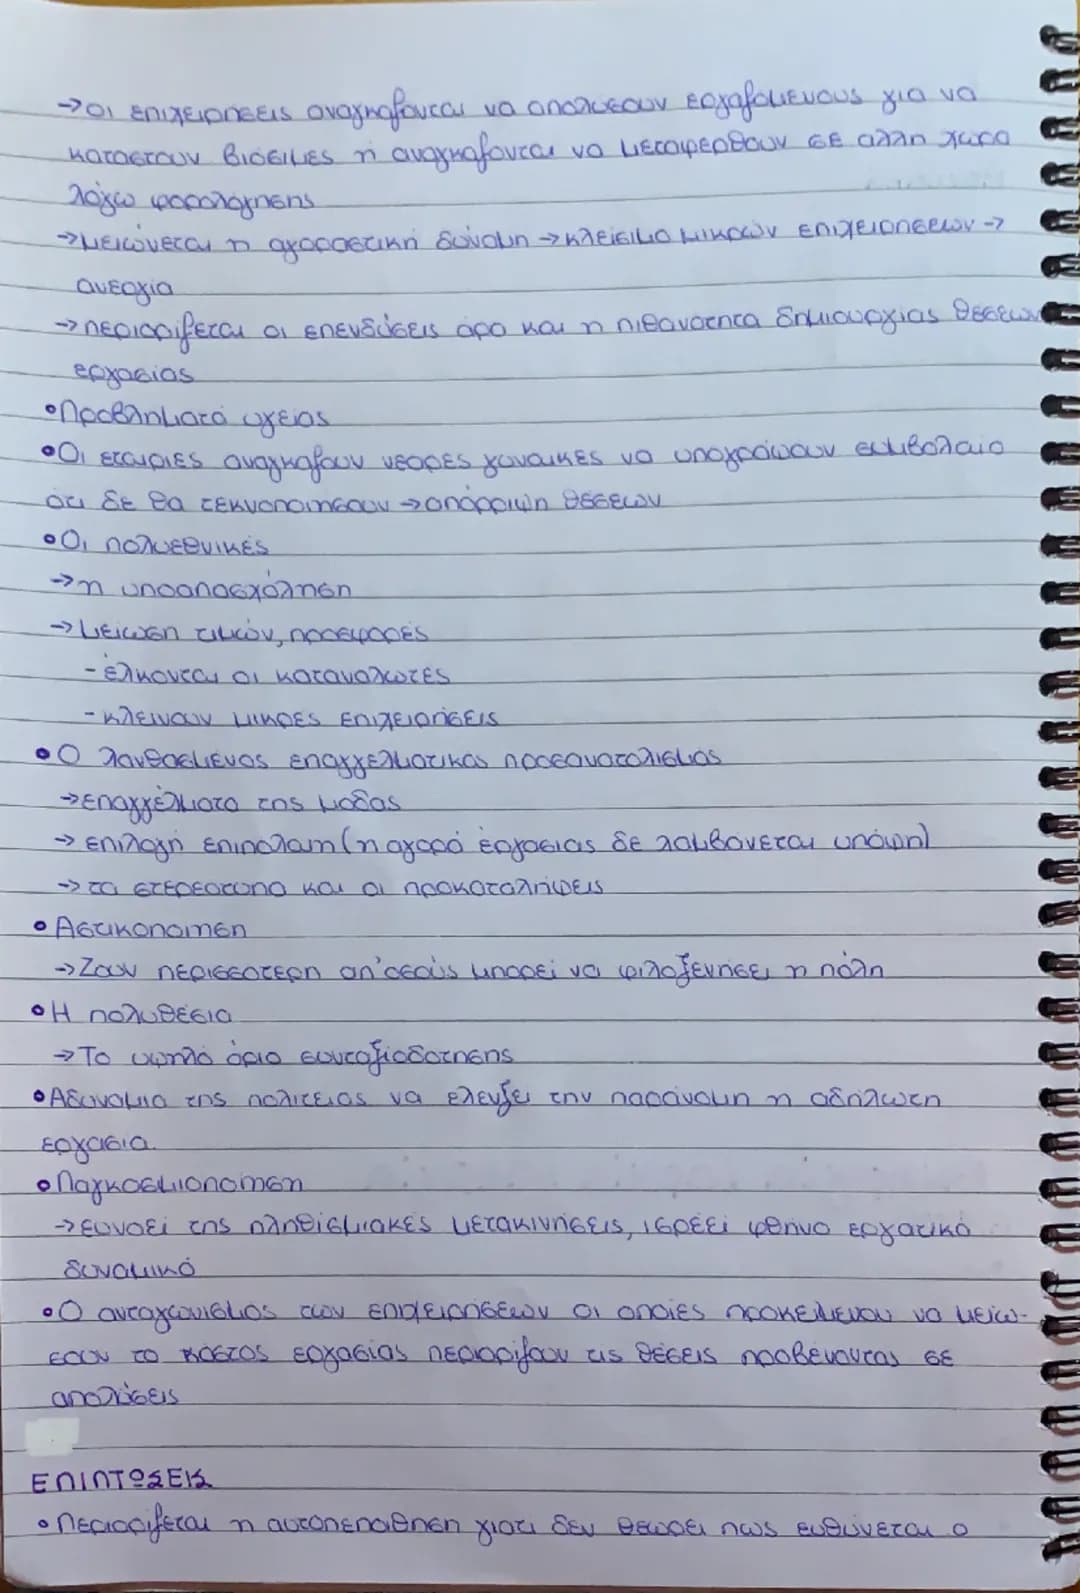 →Οι επιχειρησεις αναγκαζονται να απολυσουν εργαζομενους για να
καταστουν βιοσιμες ή αναγκαζονται να μεταφερθουν σε αλλη χωρα
λόγω φορολογησης
→μειώνεται η αγοραστική δύναμη →κλείσιμο μικρών επιχειρησεων→
ανεργια
→περιοριζεται οι επενδύσεις αρα και η πιθανοτητα δημιουργιας θεσεων
εργασιας
•Προβληματα υγειας
•Οι εταιριες αναγκαζουν νεαρες γυναικες να υπογράψουν συμβολαιο
ότι δε θα τεκνοποιησουν →απόρριψη θεσεων
•Οι πολυεθνικές
→η υποαπασχόληση
→μείωση τιμών, προσφορές
-έλκονται οι καταναλωτές
-κλεινουν μικρες επιχειρήσεις
•Ο λανθασμενος επαγγελματικος προσανατολισμος
→επαγγέλματα της μοδας
→επιλογή επιπολαιη (η αγορά έργασιας δε λαμβανεται υπόψη)
→τα στερεοτυπα και οι προκαταλήψεις
•Αστικοποιηση
→Ζουν περισσοτερη απ'οσους μπορει να φιλοξενησει η πόλη
•Η πολυθεσια
→Το υψηλό όριο συνταξιοδοτησης
•Αδυναμια της πολιτειας να ελενξει την παράνομη η αδήλωτη
εργασια.
•Παγκοσμιοποιηση
→ευνοεί της πληθισμιακές μετακινήσεις, ισρέει φθηνο εργατικό
δυναμικό
•Ο ανταγωνισμος των επιχειρήσεων οι οποίες προκειμενου να μειώ-
σουν το κόστος εργασίας περιοριζουν τις θέσεις προβενοντας σε
απολύσεις
ΕΠΙΠΤΩΣΕΙΣ
•Περιοριζεται η αυτοπεποιθηση γιατι δεν θεωρει πως ευθύνεται ο